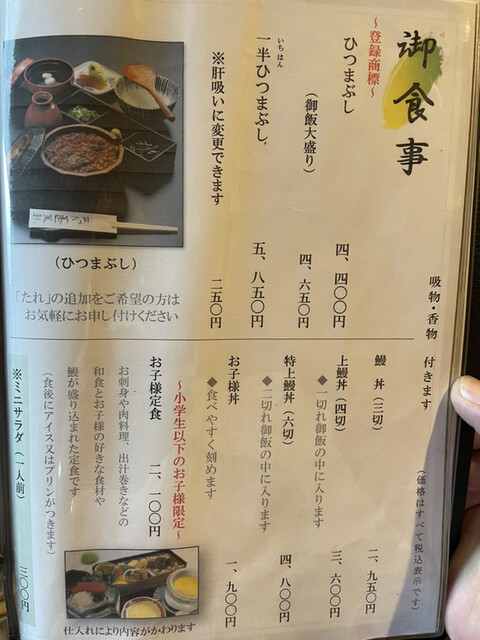 御食事
吸物・香物 付きます
(価格はすべて税込表示です)
～登録商標～
ひつまぶし 四、四〇〇円
(御飯大盛り) 四、六五〇円
いちはん
一半ひつまぶし 五、八五〇円
※肝吸いに変更できます 二五〇円
(ひつまぶし)
「たれ」の追加をご希望の方は
お気軽にお申し付けください
鰻 丼(三切) 二、九五〇円
上鰻丼(四切) 三、六〇〇円
◆一切れ御飯の中に入ります
特上鰻丼(六切) 四、八〇〇円
◆二切れ御飯の中に入ります
お子様丼 一、九〇〇円
◆食べやすく刻めます
～小学生以下のお子様限定～
お子様定食 二、一〇〇円
お刺身や肉料理、出汁巻きなどの
和食とお子様の好きな食材や
鰻が盛り込まれた定食です
(食後にアイス又はプリンがつきます)
※ミニサラダ(一人前) 三〇〇円
仕入れにより内容がかわります